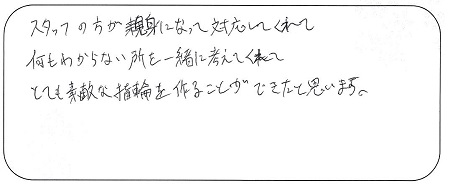 スタッフの方が親身になって対応してくれて
何もわからない所を一緒に考えてくれて
とても素敵な指輪を作ることができたと思います。